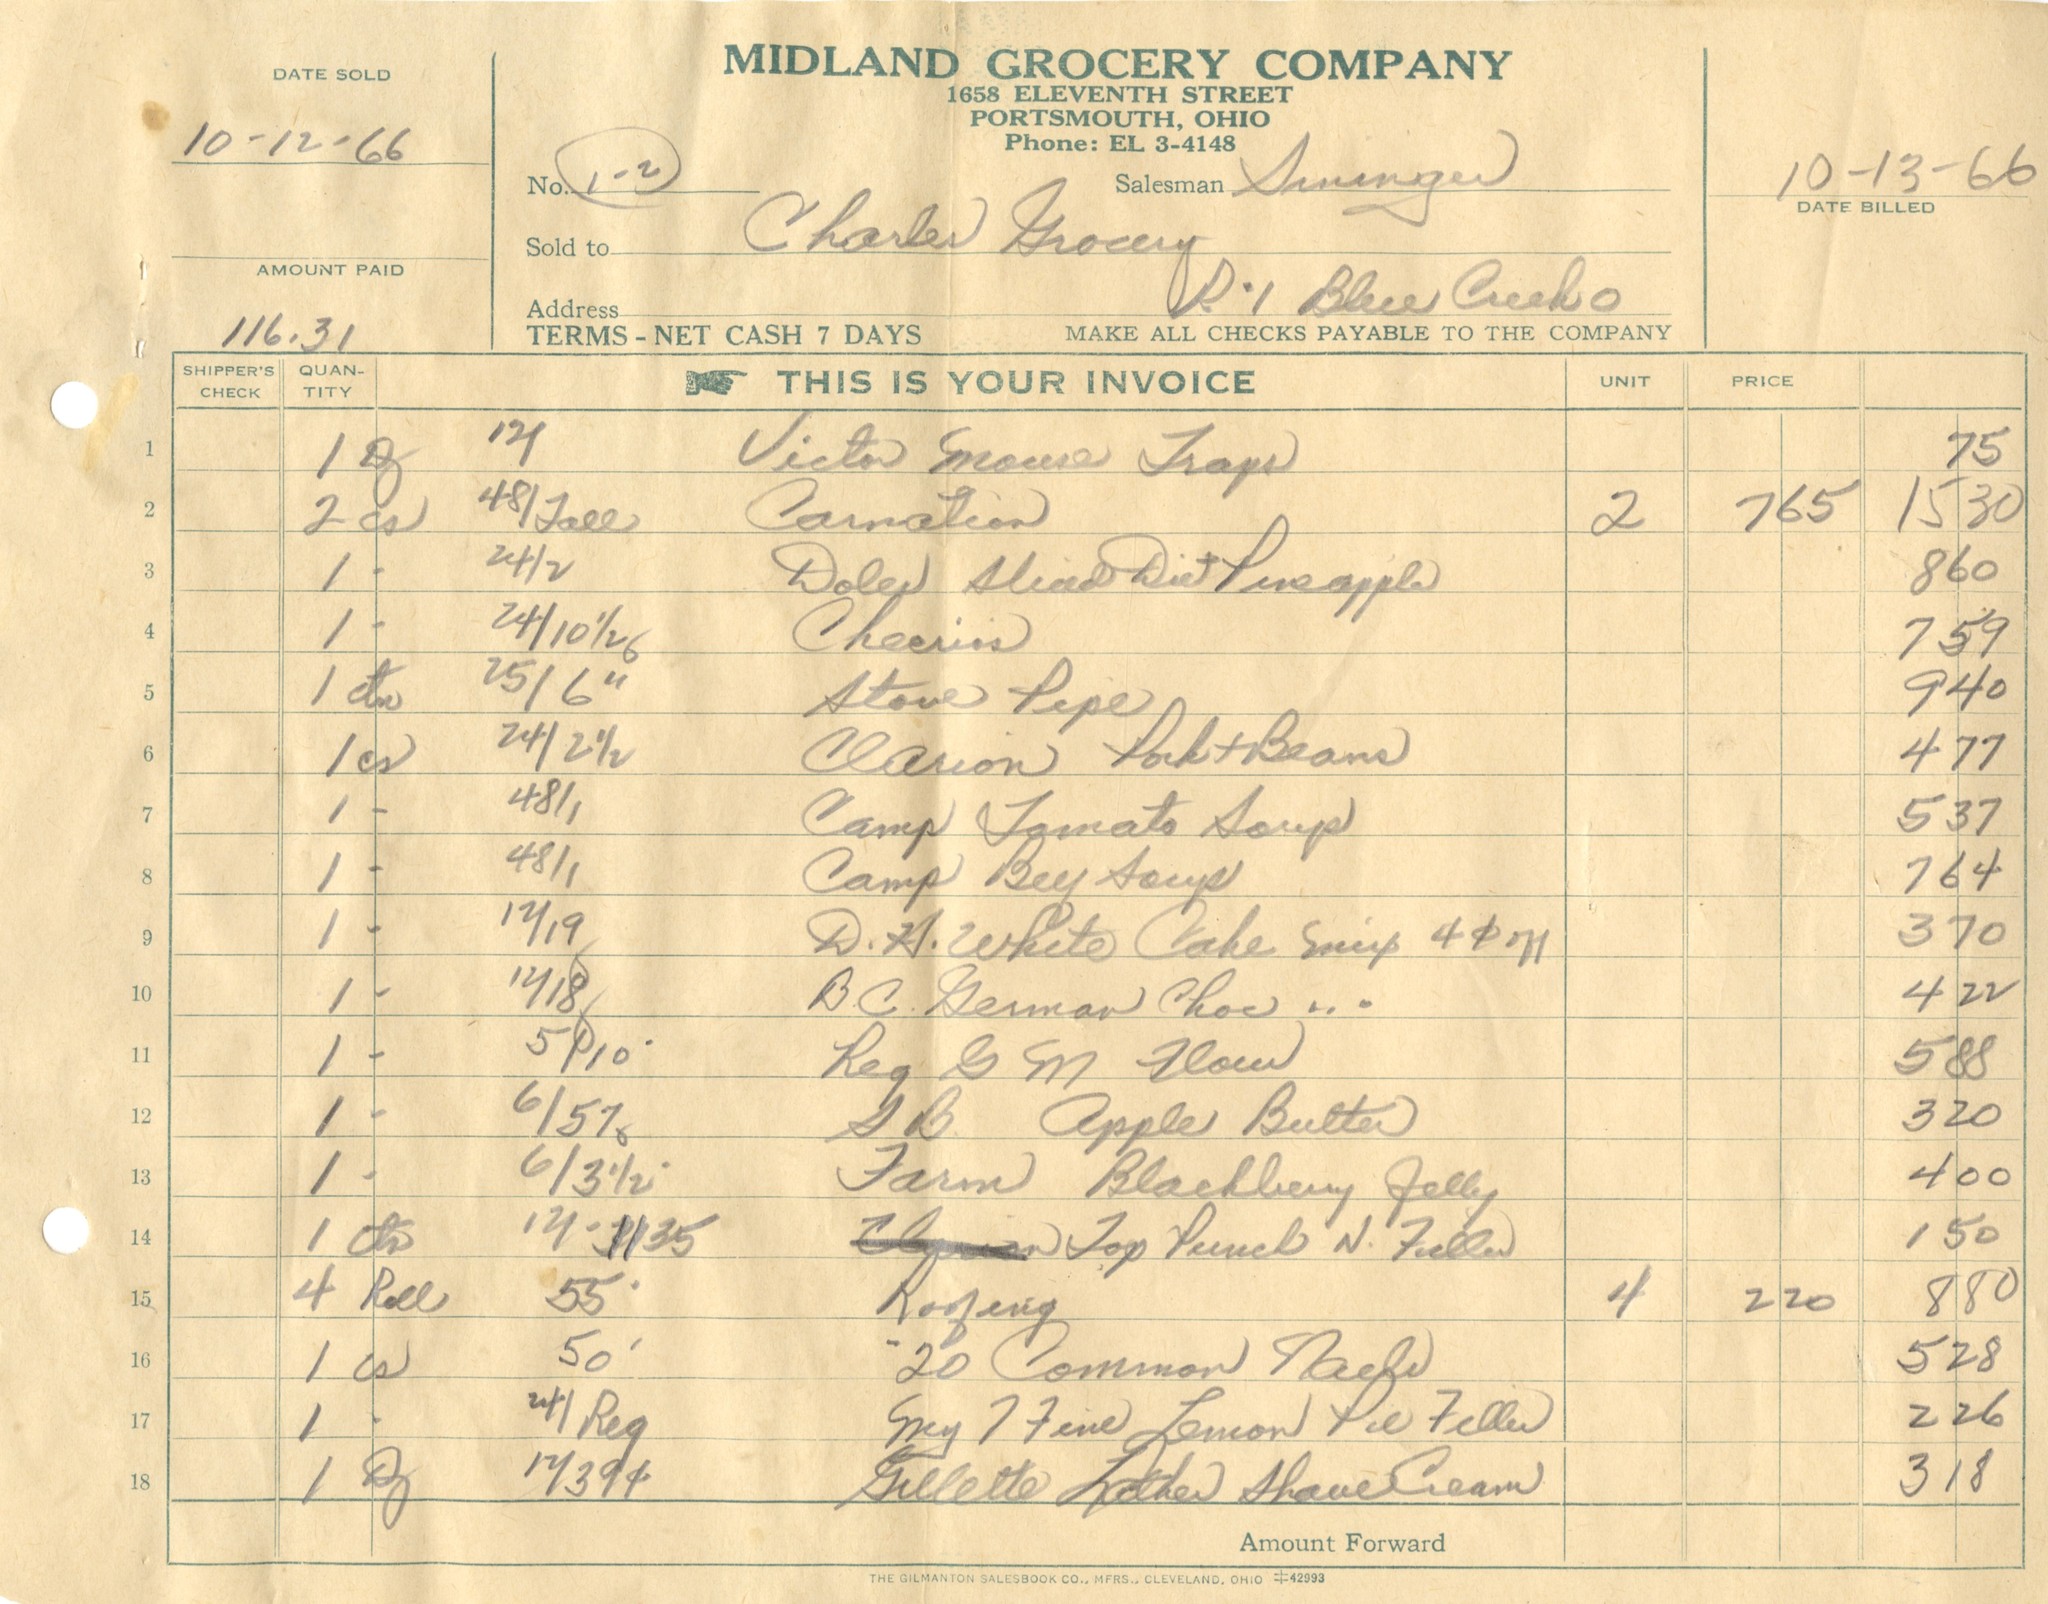 DATE SOLD
10-12-66
AMOUNT PAID
116.31
MIDLAND GROCERY COMPANY
1658 ELEVENTH STREET
PORTSMOUTH, OHIO
Phone: EL 3-4148
No. 1-2
Salesman
Sold to Charles Grocery
Address R.1 Blue Creek O
TERMS - NET CASH 7 DAYS MAKE ALL CHECKS PAYABLE TO THE COMPANY
10-13-66
DATE BILLED
SHIPPER'S CHECK QUAN-TITY THIS IS YOUR INVOICE UNIT PRICE
1 1 Dz 12/ Victor Mouse Traps 75
2 2 cs 48/Tall Carnation 2 765 1530
3 1 - 24/2 Doles Sliced Diet Pineapple 860
4 1 - 24/10 1/2 Cheerios 759
5 1 ctn 25/6" Stove Pipe 940
6 1 cs 24/2 1/2 Clarion Pork + Beans 477
7 1 - 48/1 Camp Tomato Soup 537
8 1 - 48/1 Camp Soup 764
9 1 - 12/19 D.H. White Cake Mix 4¢ off 370
10 1 - 12/18 B.C. German Choc " " 422
11 1 - 5/10 Reg G M Flour 588
12 1 - 6/57 Apple Butter 320
13 1 - 6/3 1/2 Farm Blackberry Jelly 400
14 1 ctn 12- 35 Top Punch N. Filler 150
15 4 Roll 55 Roofing 4 220 880
16 1 cs 50 20 Common Nails 528
17 1 - 24/Reg My T Fine Lemon Pie Filler 226
18 1 Dz 12/39¢ Gillette Lather Shave Cream 318
Amount Forward
THE GILMANTON SALESBOOK CO., MFRS., CLEVELAND, OHIO ‡42993